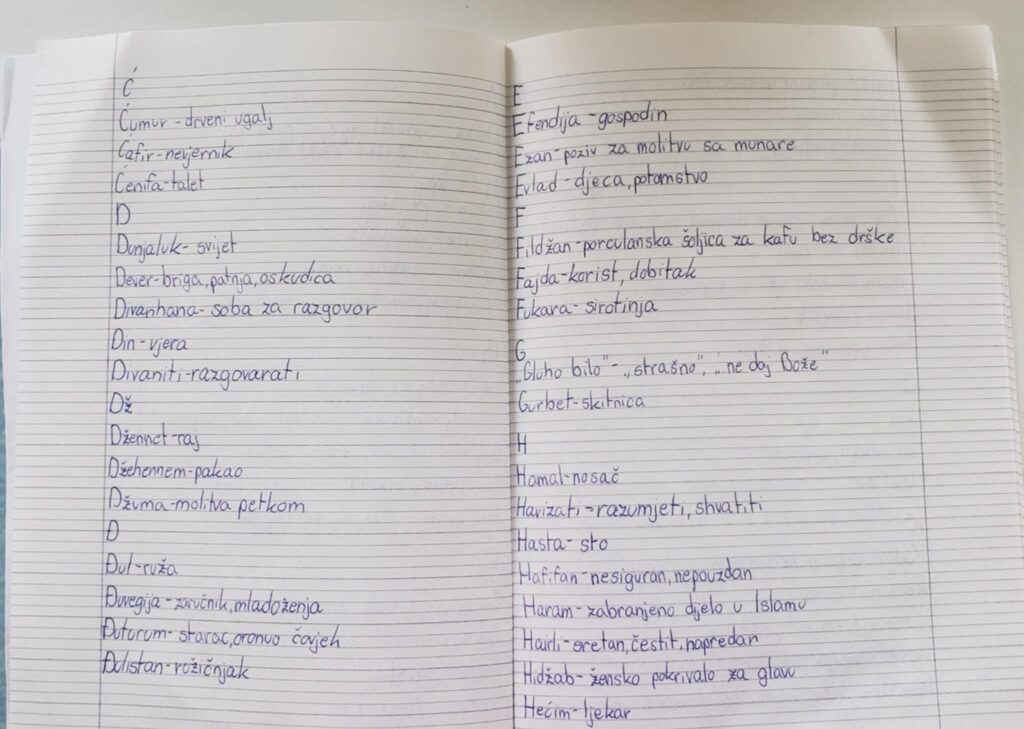 Ć
Ćumur - drveni ugalj
Ćafir - nevjernik
Ćenifa - talet
D
Dunjaluk - svijet
Dever - briga, patnja, oskudica
Divanhana - soba za razgovor
Din - vjera
Divaniti - razgovarati
Dž
Džennet - raj
Džehennem - pakao
Džuma - molitva petkom
Đ
Đul - ruža
Đuvegija - zaručnik, mladoženja
Đuturum - starac, oronuo čovjek
Đulistan - ružičnjak
E
Efendija - gospodin
Ezan - poziv za molitvu sa munare
Evlad - djeca, potomstvo
F
Fildžan - porculanska šoljica za kafu bez drške
Fajda - korist, dobitak
Fukara - sirotinja
G
„Gluho bilo" - „strašno", „ne daj Bože"
Gurbet - skitnica
H
Hamal - nosač
Havizati - razumjeti, shvatiti
Hasta - sto
Hafifan - nesiguran, nepouzdan
Haram - zabranjeno djelo u Islamu
Hairli - sretan, čestit, napredan
Hidžab - žensko pokrivalo za glavu
Hećim - ljekar